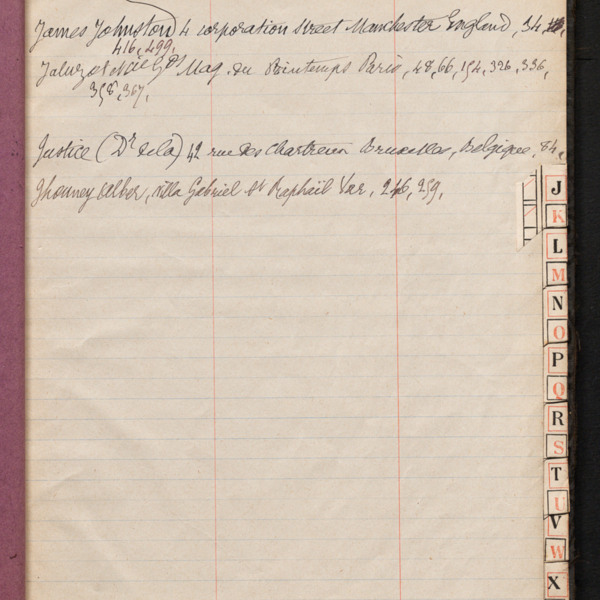 James Johnston 4 corporation Street Manchester England, 34,
416, 499,
Jaluzot & Cie Gds Mag. du Printemps Paris, 48, 66, 154, 326, 336,
358, 367,
Justice (Dr de la) 42 rue des Chartreux Bruxelles, Belgique, 84,
Jhouney Alber, villa Gabriel St Raphaël Var, 246, 259,
J
K
L
M
N
O
P
Q
R
S
T
U
V
W
X